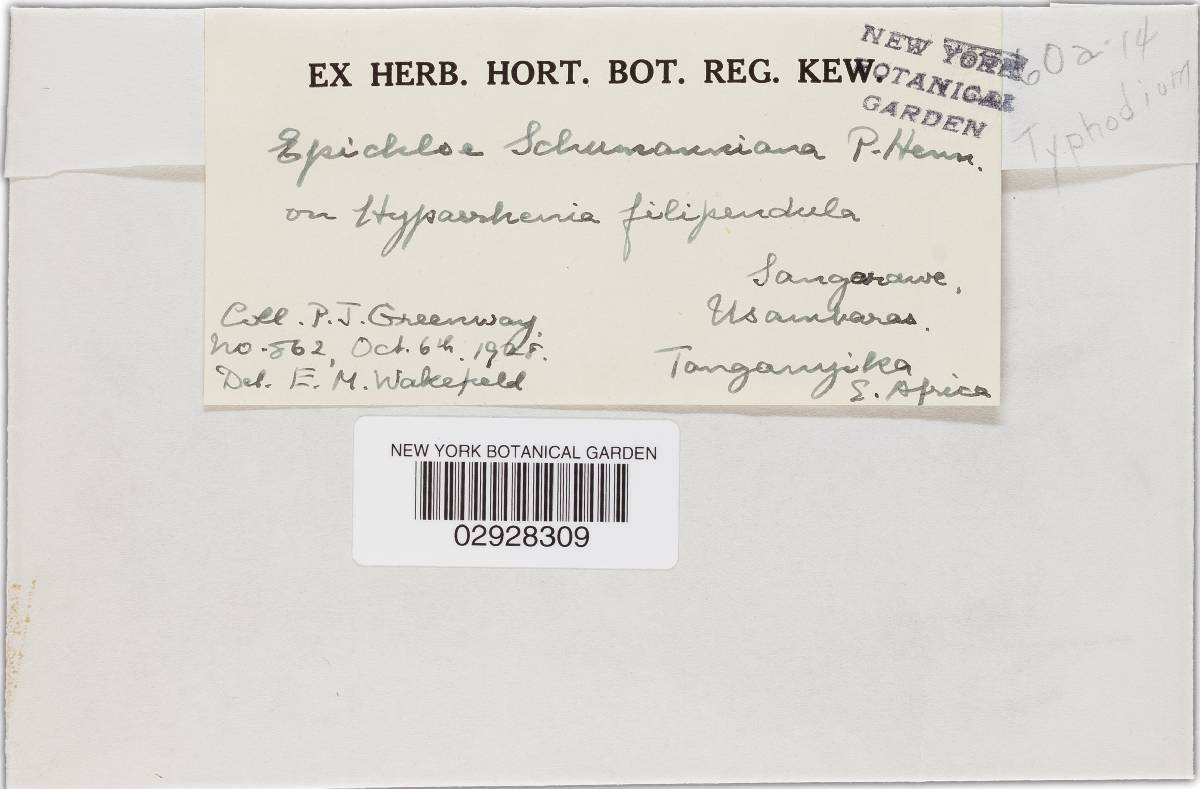 EX HERB. HORT. BOT. REG. KEW.
NEW YORK
BOTANICAL
GARDEN
60a-14
Typhodium
Epichloe Schumanniana P. Henn.
on Hyparrhenia filipendula
Sangarawe,
Usambaras.
Tanganyika
E. Africa
Coll. P. J. Greenway.
No. 862, Oct. 6th. 1928.
Det. E. M. Wakefield
NEW YORK BOTANICAL GARDEN
02928309